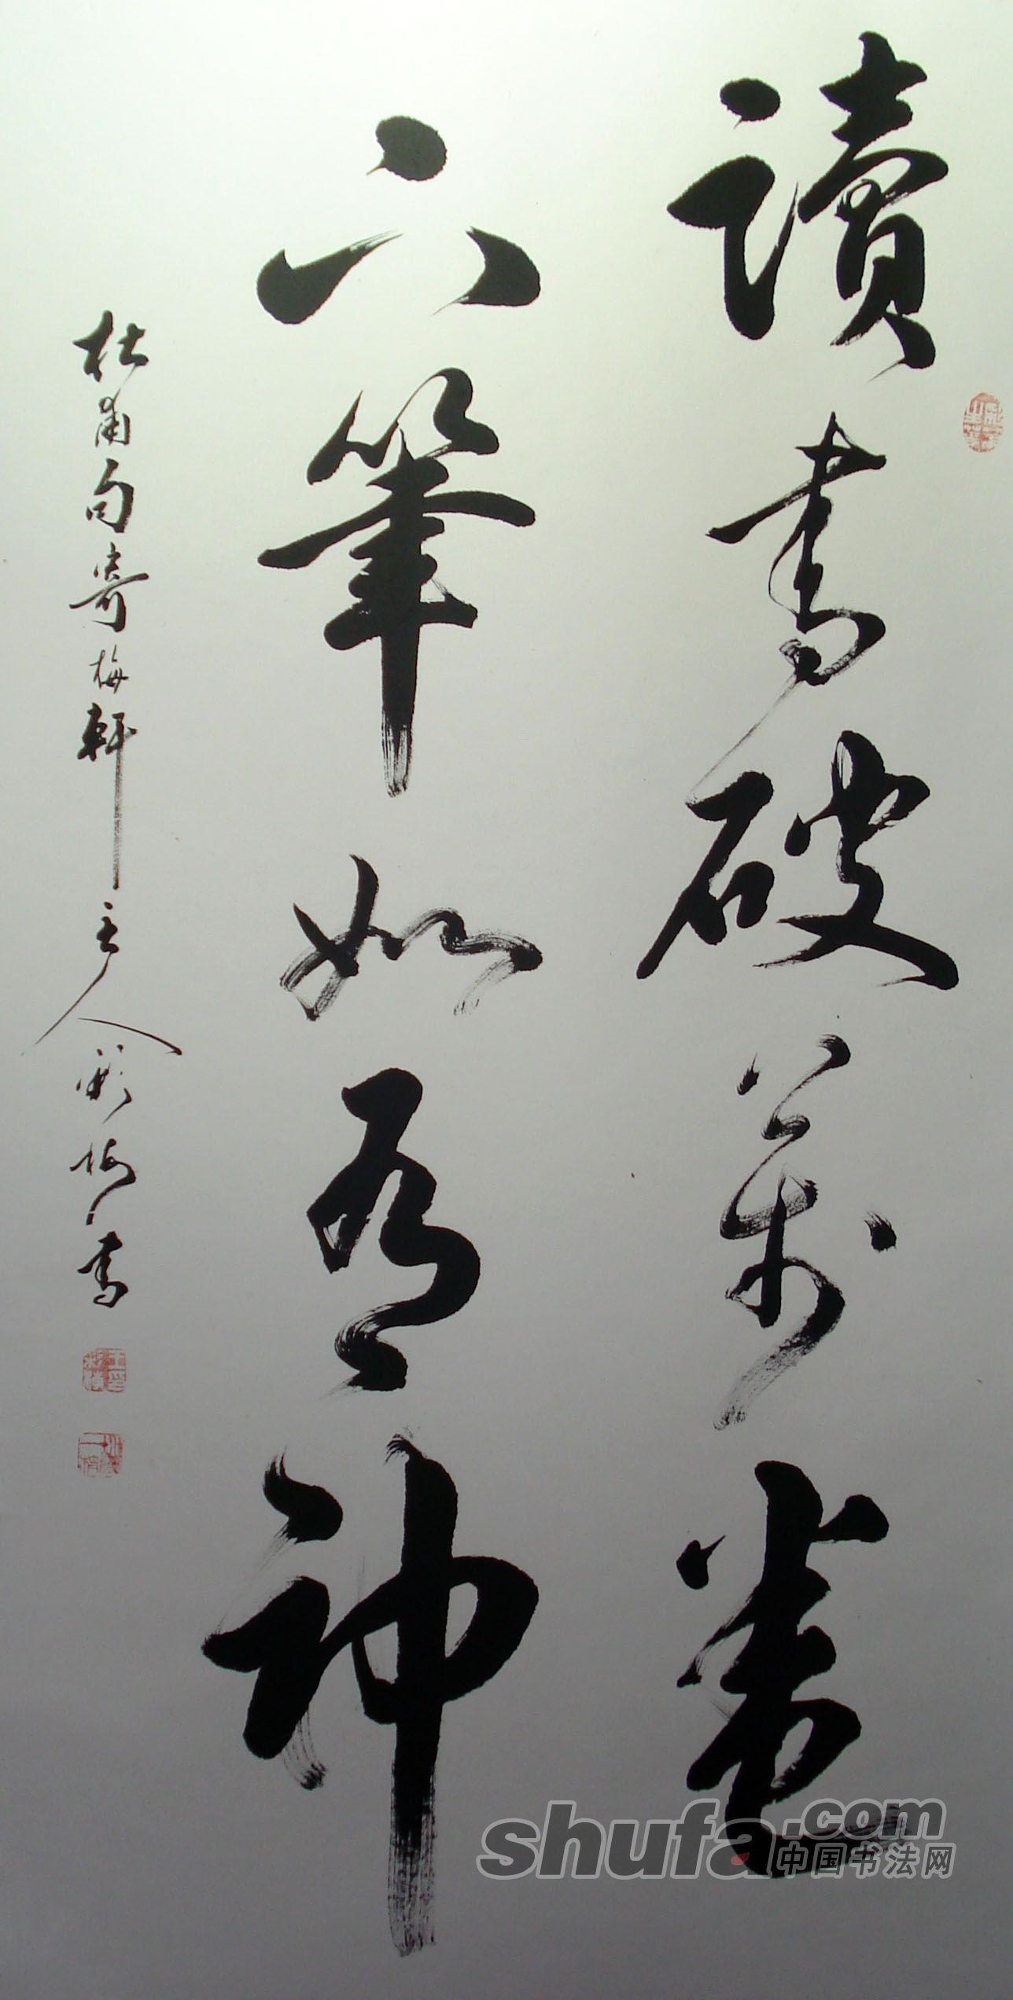 讀書破萬卷
下筆如有神
杜甫句寄梅軒主人梅書
shufa.com
中国书法网